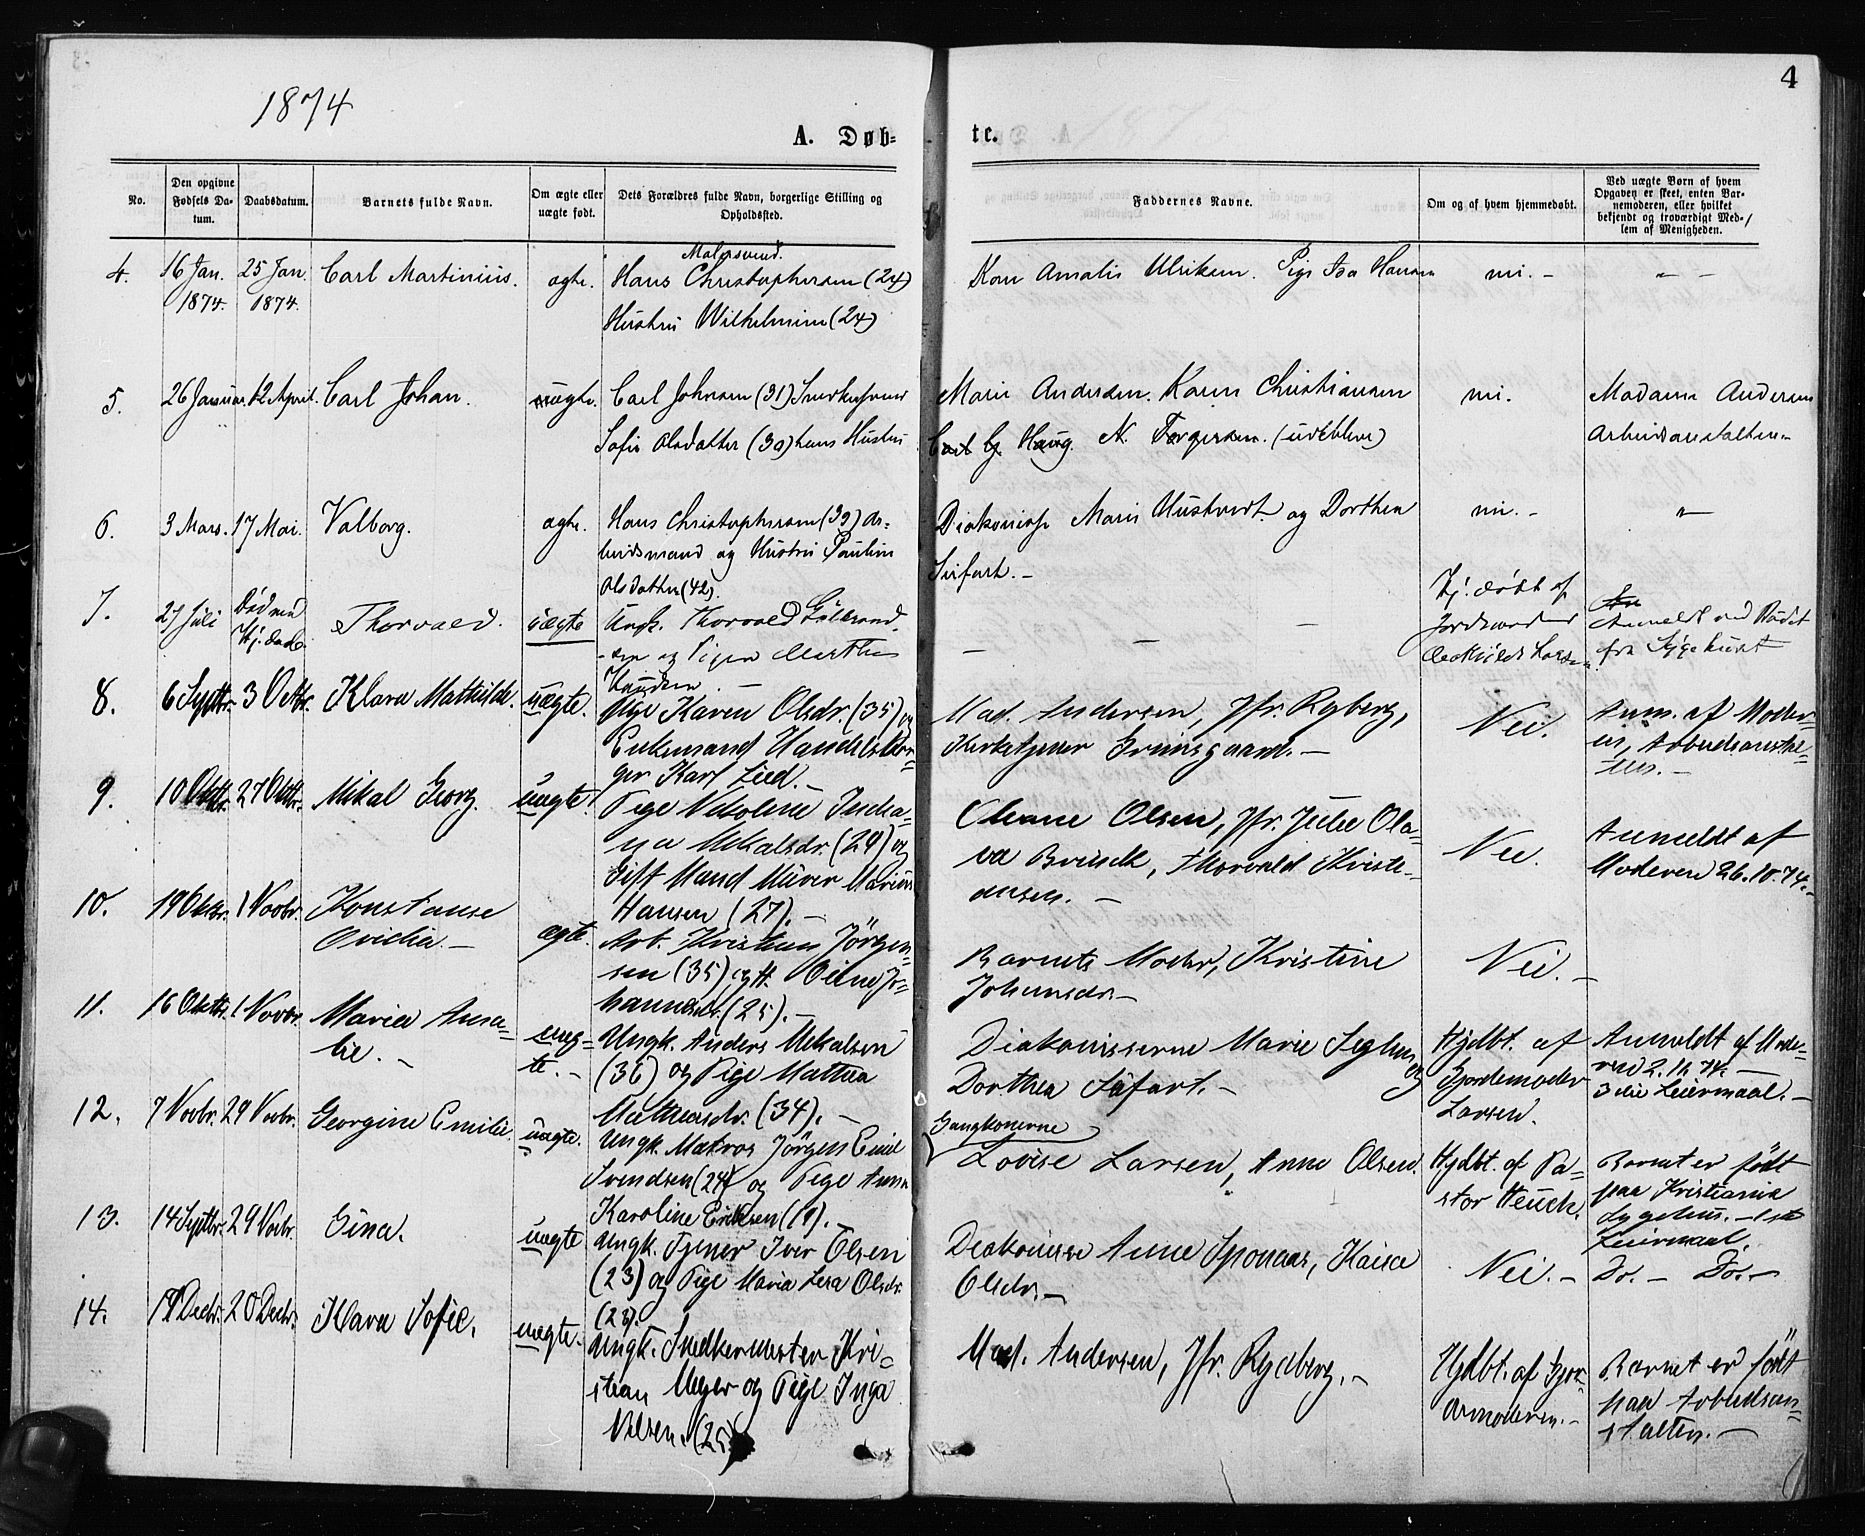 1874
4
A. Døb=
te.
No.
Den opgivne
Fødsels Da-
tum.
Daabsdatum.
Barnets fulde Navn.
Om ægte eller
uægte født.
Dets Forældres fulde Navn, borgerlige Stilling og
Opholdssted.
Faddernes Navne.
Om og af hvem hjemmedøbt.
Ved uægte Børn af hvem
Opgaven er skeet, enten Bar-
nemoderen, eller hvilket
bekjendt og troværdigt Med-
lem af Menigheden.
4.
16 Jan.
1874.
25 Jan
1874.
Carl Martinius.
ægte.
Malersvend.
Hans Christophersen (24)
Hustru Wilhelmine (24)
Kone Amalie Ulriksen. Pige Isa Hansen
nei. -
" -
5.
26 Januar.
12 April.
Carl Johan.
uægte.
Carl Johnsen (31) Snedkersvend
Sofie Olsdatter (30) hans Hustru
Marie Andersen. Karen Christiansen
Haug. N. Torgersen. (udebleve)
nei.
Madame Andersen
Arbeidsanstalten.-
6.
3 Mars.
17 Mai.
Valborg.
ægte.
Hans Christophersen (39) Ar-
beidsmand og Hustru Pauline
Olsdatter (42).
Diakonisse Marie Hustvedt. og Dorthea
Sirfart. -
nei. -
"
7.
27 Juli
Død med
Hj.daab.
Thorvald.
uægte
Ungk. Thorvald Gulbrand-
sen og Pigen Marthe
Knudsen. -
-
-
-
Hj. døbt af
Jordemoder
Larsen.
Anmeldt ved Budet
fra Sygehuset
8.
6 Septbr.
3 Octbr.
Klara Mathilde.
uægte.
Pige Karen Olsdr. (35) og
Enkemand Handelsbor-
ger Karl Lied. -
Mad. Andersen, Jfr. Ryberg,
Kirketjener Grimsgaard. -
Nei.
Anm. af Moder-
en, Arbeidsanstal-
ten. -
9.
10 Oktbr.
27 Oktbr.
Mikal Georg.
uægte.
Pige Nikoline India-
na Mikalsdr. (29) og
Gift Mand Murer Marius
Hansen (27). -
Oleane Olsen, Jfr. Julie Ola-
va Brusch, Thorvald Kristi-
ansen. -
Nei.
Anmeldt af
Moderen 26.10.74. -
10.
19 Oktbr.
1 Novbr.
Konstanse
Ovidia. -
ægte.
Arb. Kristian Jörgen-
sen (35) og H. Oline Jo-
hannesdr. (25). -
Barnets Moder, Kristine
Johansdr. -
Nei. -
11.
16 Oktbr.
1 Novbr.
Maria Ama-
lie. -
uæg-
te. -
Ungk. Anders Mikalsen
(36) og Pige Mathea
Mathiasdr. (34). -
Diakonisserne Marie Seghus og
Dorthea Säfart. -
Hjdbt. af
Gjordemoder
Larsen.
Anmeldt af Mode-
ren 2.11.74. -
3die Leiermaal. -
12.
7 Novbr.
29 Novbr.
Georgine Emilie.
uægte.
Ungk. Matros Jörgen Emil
Svendsen (24) og Pige Anna
Karoline Eriksen (19). -
Gangkonerne
Lovise Larsen, Anne Olsen.
Hjdbt. af Pa-
stor Heuch.
Barnet er født
paa Kristiania
Sygehus. - 1ste
Leiermaal.
13.
14 Septbr.
29 Novbr.
Gina.
uægte
Ungk. Tjener Iver Olsen
(23) og Pige Maria Lesa Olsdr.
(28).
Diakonisse Anne Sponaas, Kaisa
Olsdr. -
Nei. -
Do. - Do. -
14.
17 Decbr.
20 Decbr.
Klara Sofie.
uægte.
Ungk. Snedkermester Kri-
stian Meyer og Pige Inga
Nilsen. (25)
Mad. Andersen, Jfr. Rydberg. -
Hjdbt. af Gjor-
demoderen. -
Barnet er født
paa Arbeidsan-
stalten. -